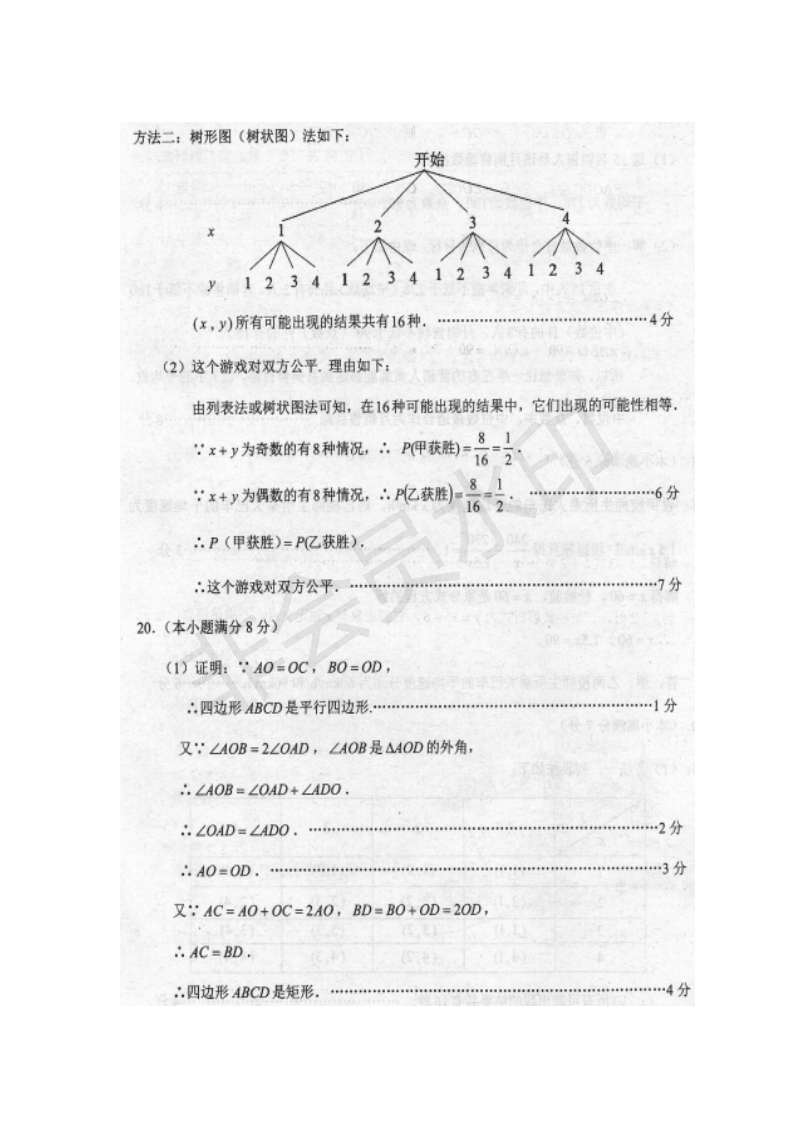 方法二：树形图（树状图）法如下：
开始
x 1 2 3 4
y 1 2 3 4 1 2 3 4 1 2 3 4 1 2 3 4
(x , y)所有可能出现的结果共有16种．……………………………4分
（2）这个游戏对双方公平．理由如下：
由列表法或树状图法可知，在16种可能出现的结果中，它们出现的可能性相等．
∵ x + y 为奇数的有8种情况，∴ P(甲获胜) = 8/16 = 1/2．
∵ x + y 为偶数的有8种情况，∴ P(乙获胜) = 8/16 = 1/2．……………………6分
∴ P（甲获胜）= P(乙获胜)．
∴这个游戏对双方公平．……………………………………………………7分
20．（本小题满分8分）
（1）证明：∵ AO = OC，BO = OD，
∴四边形 ABCD 是平行四边形.………………………………………………1分
又∵ ∠AOB = 2∠OAD，∠AOB 是 ΔAOD 的外角，
∴ ∠AOB = ∠OAD + ∠ADO．
∴ ∠OAD = ∠ADO．…………………………………………………………2分
∴ AO = OD．…………………………………………………………………3分
又∵ AC = AO + OC = 2AO，BD = BO + OD = 2OD，
∴ AC = BD．
∴四边形 ABCD 是矩形．………………………………………………………4分
非会员水印